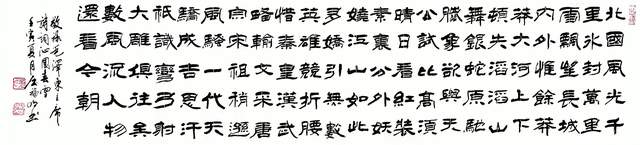 北國風光千
里冰封萬里
雪飄望長城
內外惟餘莽
莽大河上下
頓失滔滔山
舞銀蛇原馳
臘象欲與天
公試比高須
晴日看紅裝
素裹分外妖
嬈江山如此
多嬌引無數
英雄競折腰
惜秦皇漢武
略輸文采唐
宗宋祖稍遜
風騷一代天
驕成吉思汗
祗識彎弓射
大雕俱往矣
數風流人物
還看今朝
敬錄毛澤東主席
詩詞沁園春雪
壬寅夏月